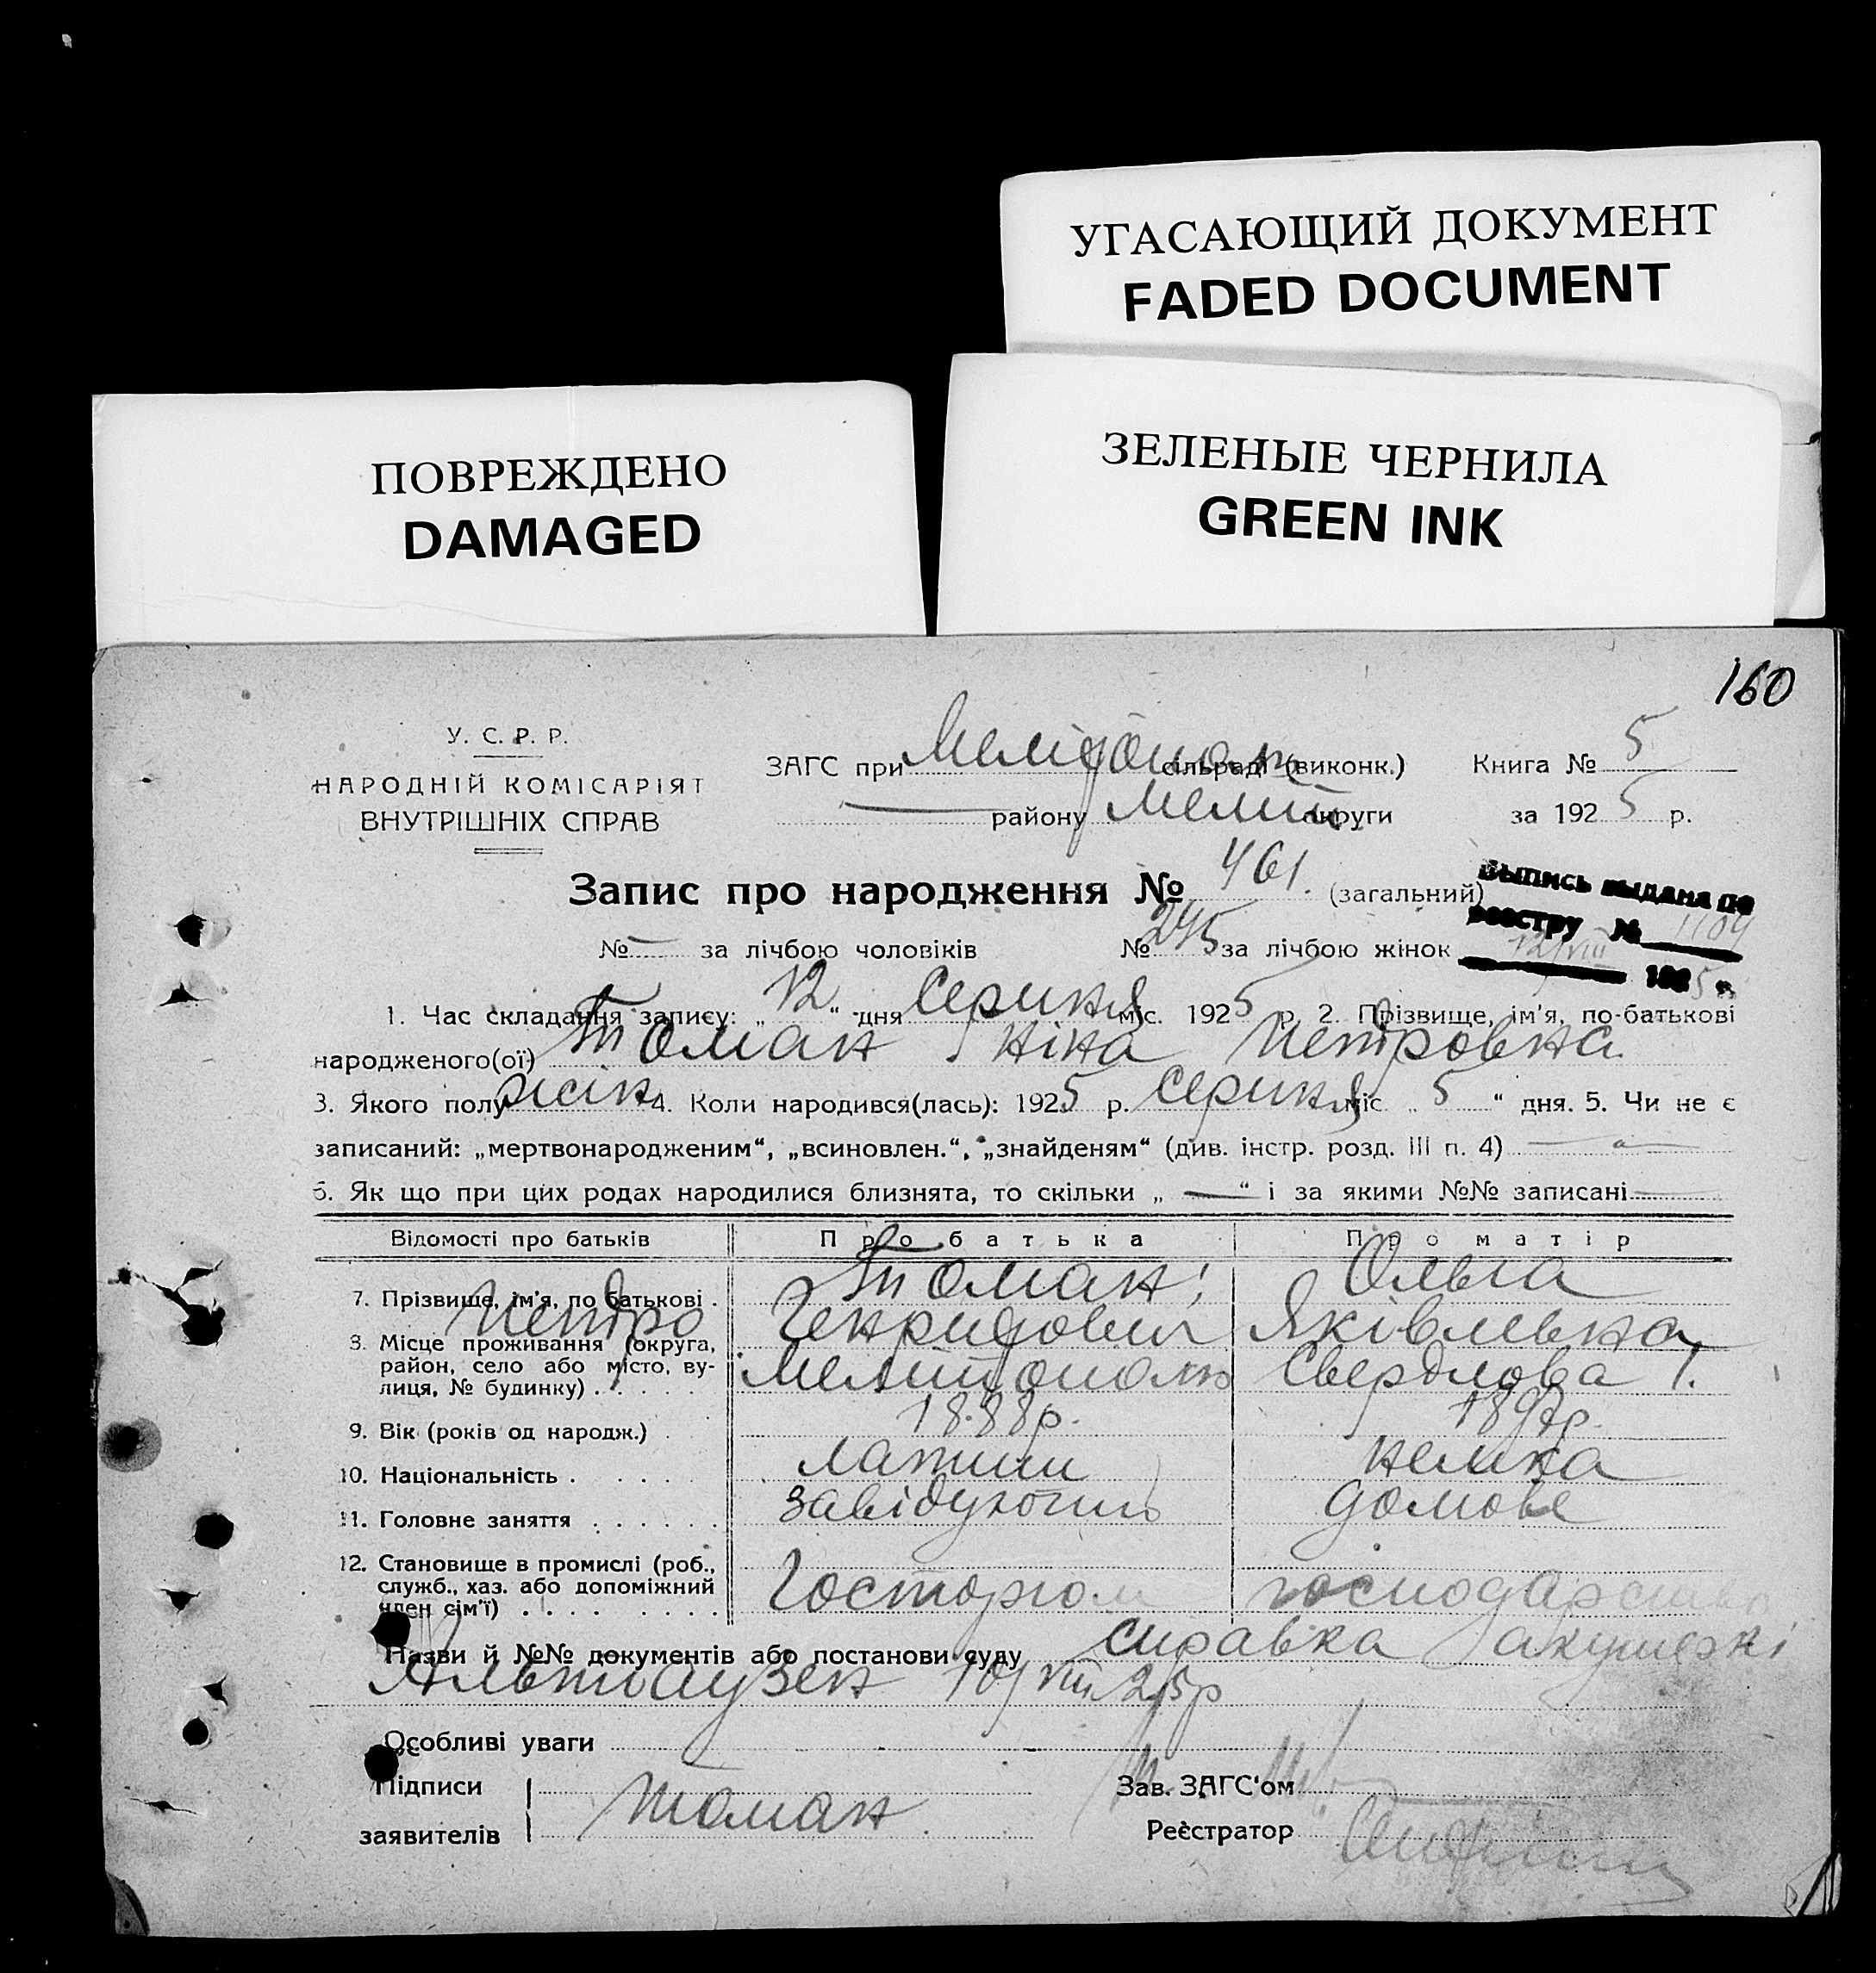 УГАСАЮЩИЙ ДОКУМЕНТ
FADED DOCUMENT
ПОВРЕЖДЕНО
DAMAGED
ЗЕЛЕНЫЕ ЧЕРНИЛА
GREEN INK
160
У. С. Р. Р.
НАРОДНІЙ КОМІСАРІЯТ
ВНУТРІШНІХ СПРАВ
ЗАГС при Мелітопол. сільраді (виконк.) Книга № 5
— району Меліт. округи за 1925 р.
Запис про народження № 461. (загальний)
Выпись выдана по
реестру № 1104
12/VIII 1925 г.
№ — за лічбою чоловіків № 245 за лічбою жінок
1. Час складання запису: „12“ дня Серпня міс. 1925 р. 2. Прізвище, ім'я, по-батькові
народженого(ої) Томан Ніна Петровна
3. Якого полу жін. 4. Коли народився(лась): 1925 р. Серпня міс. „5“ дня. 5. Чи не є
записаний: „мертвонародженим“, „всиновлен.“, „знайденям“ (див. інстр. розд. III п. 4) —
6. Як що при цих родах народилися близнята, то скільки „—“ і за якими №№ записані —
Відомості про батьків Про батька Про матір
7. Прізвище, ім'я, по батькові . Томан, Ольга
Петро Генрихович Яківлевна
8. Місце проживання (округа, район, село або місто, вулиця, № будинку) . . . . . Мелітополь Свердлова 1.
9. Вік (років од народж.) . 1888р. 1897р.
10. Національність . . . . . латиш немка
11. Головне заняття . . . . . . завідуючий домове
12. Становище в промислі (роб., служб., хаз. або допоміжний член сім'ї) . . . . . . . . . Госторгом господарство
Назви й №№ документів або постанови суду справка акушеркі
Альтгаузен 10/VIII 25р
Особливі уваги
Підписи
заявителів Томан
Зав. ЗАГС'ом
Реєстратор